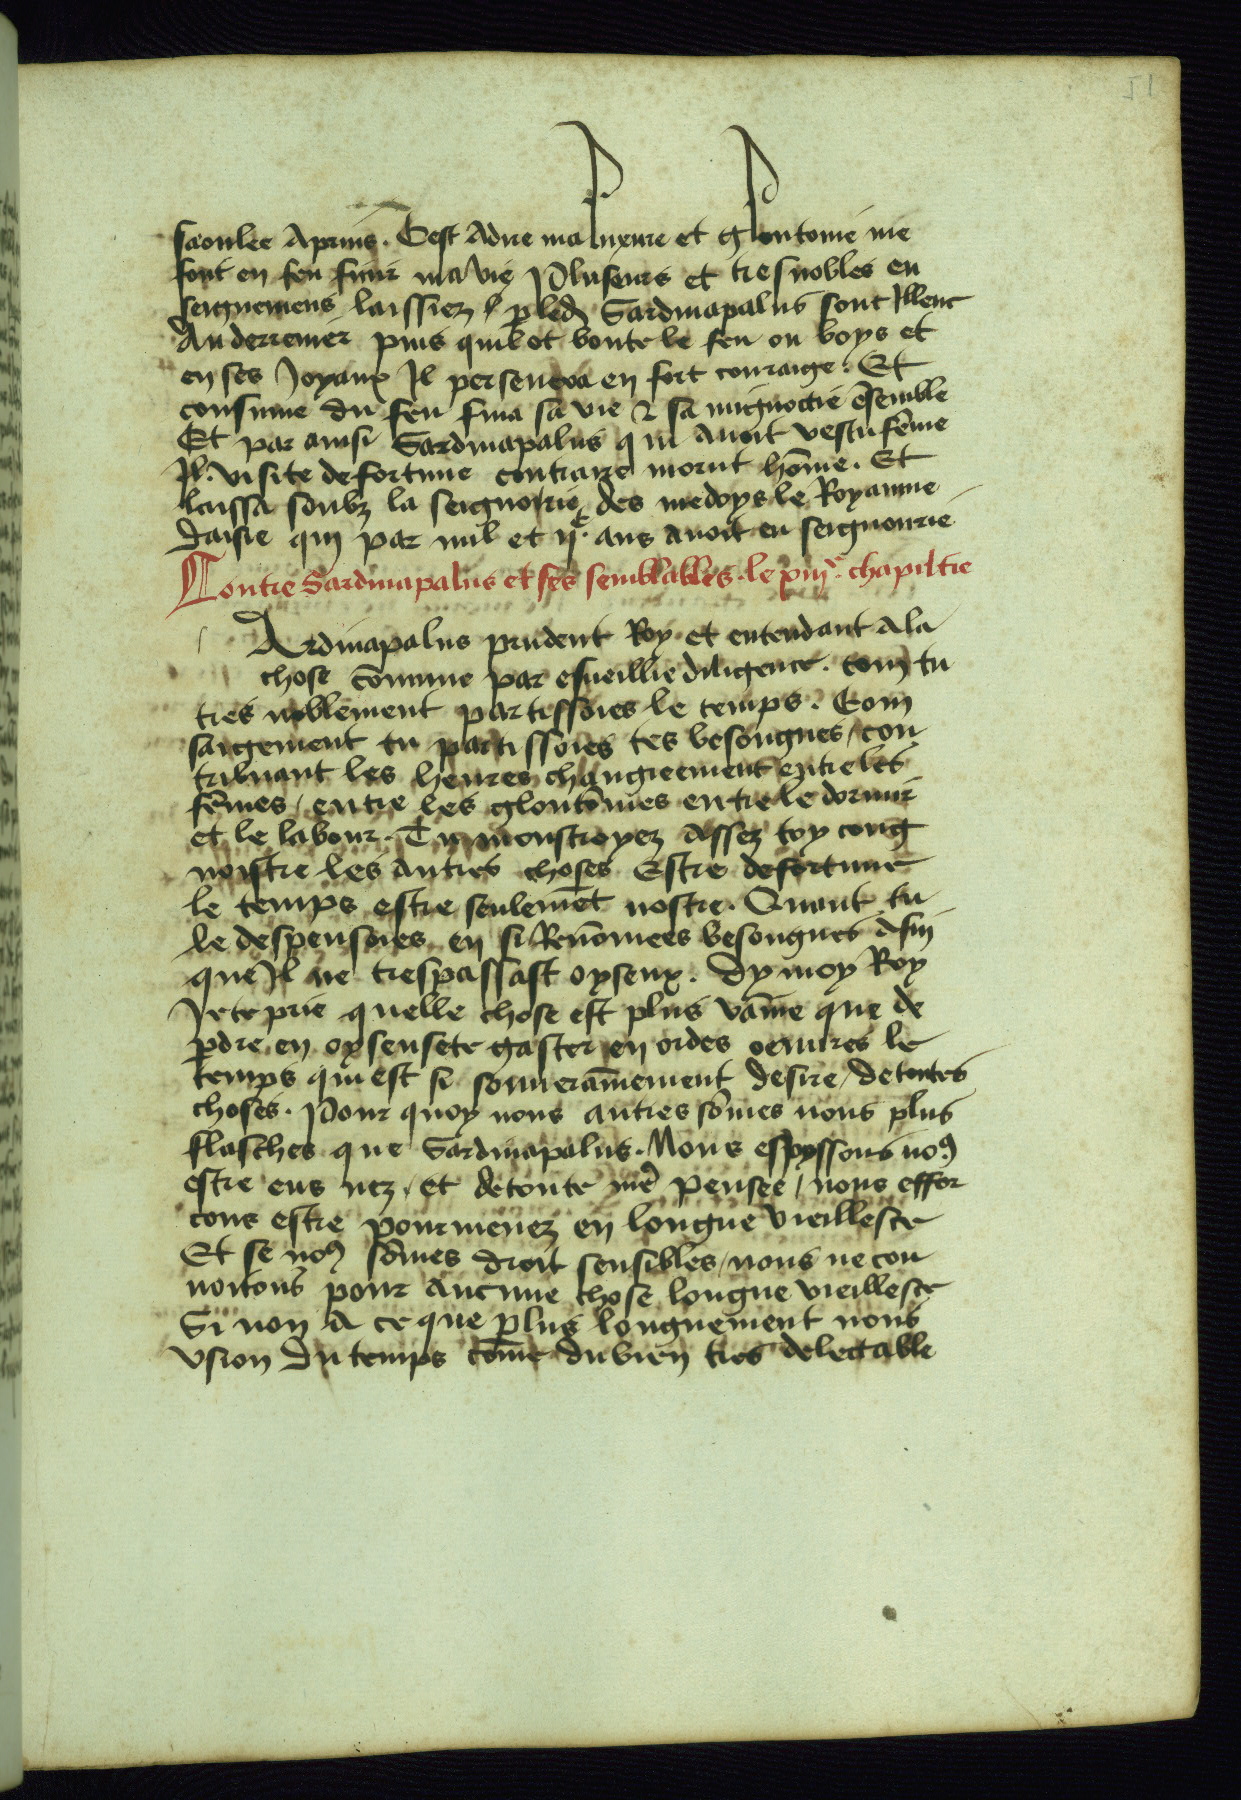 51
saoulee Aprins. Cest Adire ma luxure et gloutonie me
font en feu finir ma vie Pluseurs et tres nobles en
seignemens laissiez / p led Sardinapalus sont Illenc
Au derrenier puis quil ot boute le feu ou boys et
en ses Joyaux Il persevera en fort couraige. Et
consume du feu fina sa vie & sa mignotie ensemble
Et par ainsi Sardinapalus qui Avoit vestu feme
Il. visite de fortune contraire morut home. Et
laissa soubz la seignourie des medoys le Royaume
daisie qui par mil et ij.c ans avoit eu seignourie
Contre Sardinapalus et ses semblables. le xiij.e chapiltre
Ardinapalus prudent Roy et entendant A la
chose comune par esueillie diligence. com tu
tres noblement partissoies le temps. Com
saigement tu partissoies tes besongnes / con
tribuant les heures changieement entre les
femes / entre les gloutonies entre le dormir
et le labour. Tu monstroyez Assez toy cong
noistre les Autres choses Estre de fortune
le temps estre seulemet nostre. Quant tu
le despensoies en si Renomees besongnes Afin
que Il ne trespassast oyseux. Dy moy Roy
Je te prie quelle chose est plus vaine que de
pdre en oyseusete gaster en ordes oeuures le
temps qui est si souverainement desire / de toutes
choses. Pour quoy nous autres somes nous plus
flasches que Sardinapalus. Nous esioyssons no9
estre eus nez / et de toute nre pensee / nous effor
cons estre pourmenez en longue vieillesce
Et se no9 somes droit sensibles / nous ne con
uoitons pour Aucune chose longue vieillesce
Si non A ce que plus longuement nous
vsion Du temps come du bien tres delectable